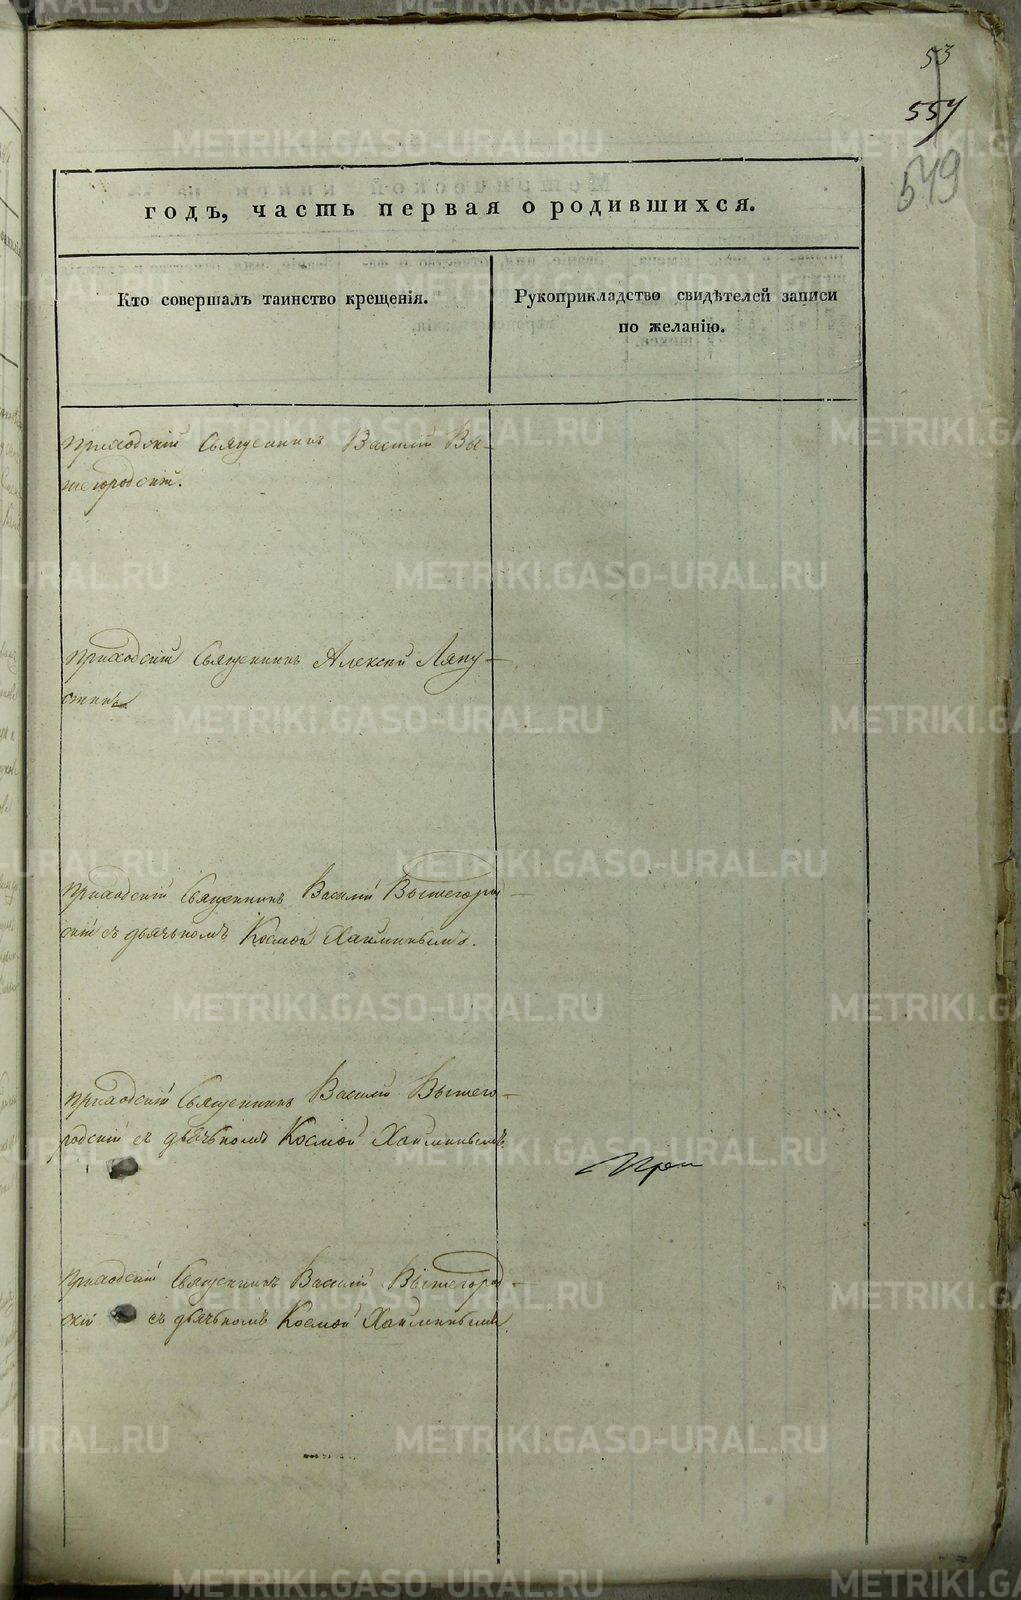 53
557
549
годъ, часть первая о родившихся.
Кто совершалъ таинство крещенія.
Рукоприкладство свидѣтелей записи
по желанію.
приходскій Священникъ Василій Вы-
шегородскій.
приходскій Священникъ Алексѣй Ляпу-
стинъ
приходскій Священникъ Василій Вышегород-
скій съ дьячькомъ Космой
приходскій Священникъ Василій Вышего-
родскій съ дьячькомъ Космой
приходскій Священникъ Василій Вышегород-
скій съ дьячькомъ Космой
METRIKI.GASO-URAL.RU